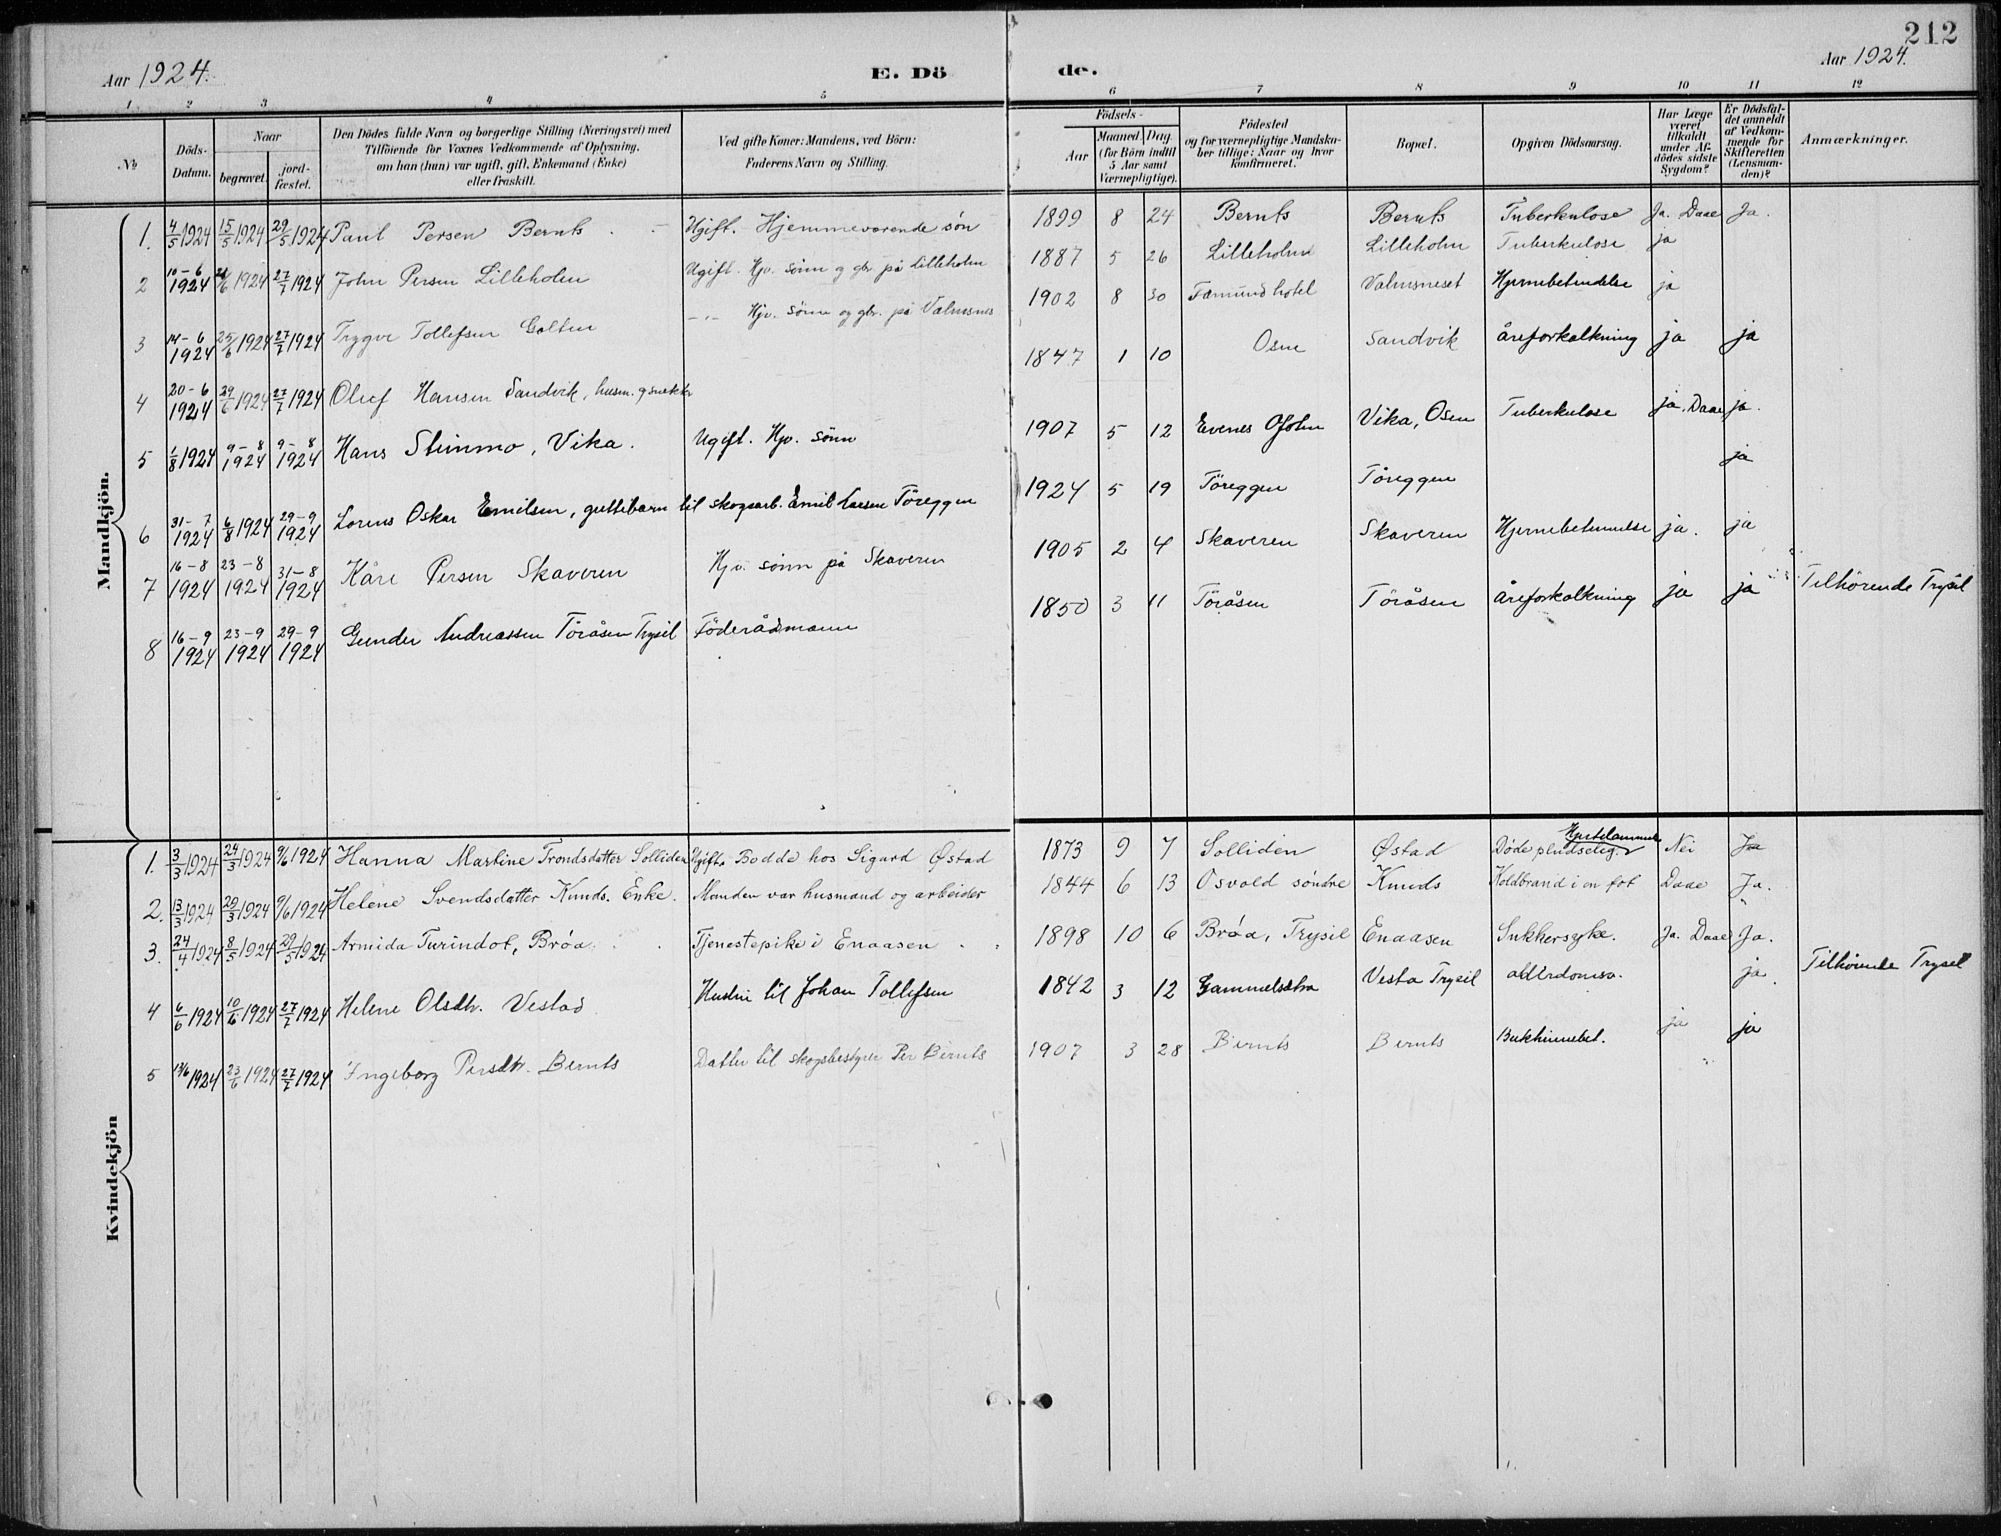 212
Aar 1924.
E. Dö
de.
Aar 1924.
1 2 3 4 5 6 7 8 9 10 11 12
№
Döds-Datum.
Naar
begravet.
jord-fæstet.
Den Dödes fulde Navn og borgerlige Stilling (Næringsvei) med
Tilföiende for Voxnes Vedkommende af Oplysning,
om han (hun) var ugift, gift, Enkemand (Enke)
eller fraskilt.
Ved gifte Koner: Mandens, ved Börn:
Faderens Navn og Stilling.
Födsels-
Aar
Maaned Dag.
(for Börn indtil
5 Aar samt
Værnepligtige).
Födested
og for værnepligtige Mandska-
ber tillige: Naar og hvor
konfirmeret.
Bopæl.
Opgiven Dödsaarsag.
Har Læge
været
tilkaldt
under Af-
dödes sidste
Sygdom?
Er Dödsfal-
det anmeldt
af Vedkom-
mende for
Skifteretten
(Lensman-
den)?
Anmærkninger.
Mandkjön.
1. 4/5 1924 15/5 1924 29/5 1924 Paul Persen Bernts Ugift. Hjemmeværende søn 1899 8 24 Bernts Bernts Tuberkulose Ja. Daae Ja.
2 10-6 1924 21/6 1924 27/7 1924 John Persen Lilleholm Ugift. Hjv. sönn og gbr på Lilleholm 1887 5 26 Lilleholm Lilleholm Tuberkulose ja
3 14-6 1924 25/6 1924 27/7 1924 Trygve Tollefsen Galten -"- Hjv. sönn og gbr. på Valmsnes 1902 8 30 Fæmund hotel Valmsneset Hjernebetendelse ja
4 20-6 1924 29/6 1924 27/7 1924 Oluf Hansen Sandvik, husm. og snekker 1847 1 10 Osen Sandvik åreforkalkning ja ja
5 1/8 1924 9-8 1924 9-8 1924 Hans Stenmo, Vika. Ugift. Hjv. sönn 1907 5 12 Evenes Ofoten Vika, Osen Tuberkulose ja. Daae ja.
6 31-7 1924 6/8 1924 29-9 1924 Lorens Oskar Emilsen, guttebarn til skogsarb. Emil Larsen Töreggen 1924 5 19 Töreggen Töreggen ja
7 16-8 1924 23-8 1924 31-8 1924 Kåre Persen Skaveren Hjv. sönn på Skaveren 1905 2 4 Skaveren Skaveren Hjernebetennelse ja. ja
8 16-9 1924 23-9 1924 29-9 1924 Gunder Andreassen Töråsen Trysil Föderådsmann 1850 3 11 Töråsen Töråsen åreforkalkning ja ja Tilhörende Trysil
Kvindekjön
1. 3/3 1924 24/3 1924 9/6 1924 Hanna Martine Trondsdatter Solliden Ugift. Bodde hos Sigurd Østad 1873 9 7 Solliden Østad Døde pludselig. Hjertelammelse Nei Ja
2. 13/3 1924 20/3 1924 9/6 1924 Helene Svendsdatter Knuds. Enke. Manden var husmand og arbeider 1844 6 13 Osvold søndre Knuds Koldbrand i en fot Daae Ja.
3. 24/4 1924 8/5 1924 29/5 1924 Armida Turindot, Brøa. Tjenestepike i Enaasen 1898 10 6 Brøa, Trysil Enaasen Sukkersyke. Ja. Daae Ja.
4 6/6 1924 10/6 1924 27/7 1924 Helene Olsdtr. Vestad Hustru til Johan Tollefsen 1842 3 12 Gammelsætra Vesta Trysil alderdomsv. ja. Tilhörende Trysil
5 13/6 1924 23/6 1924 27/7 1924 Ingeborg Persdtr. Bernts Datter til skogsbestyrer Per Bernts 1907 3 28 Bernts Bernts Bukhinnebet. ja ja